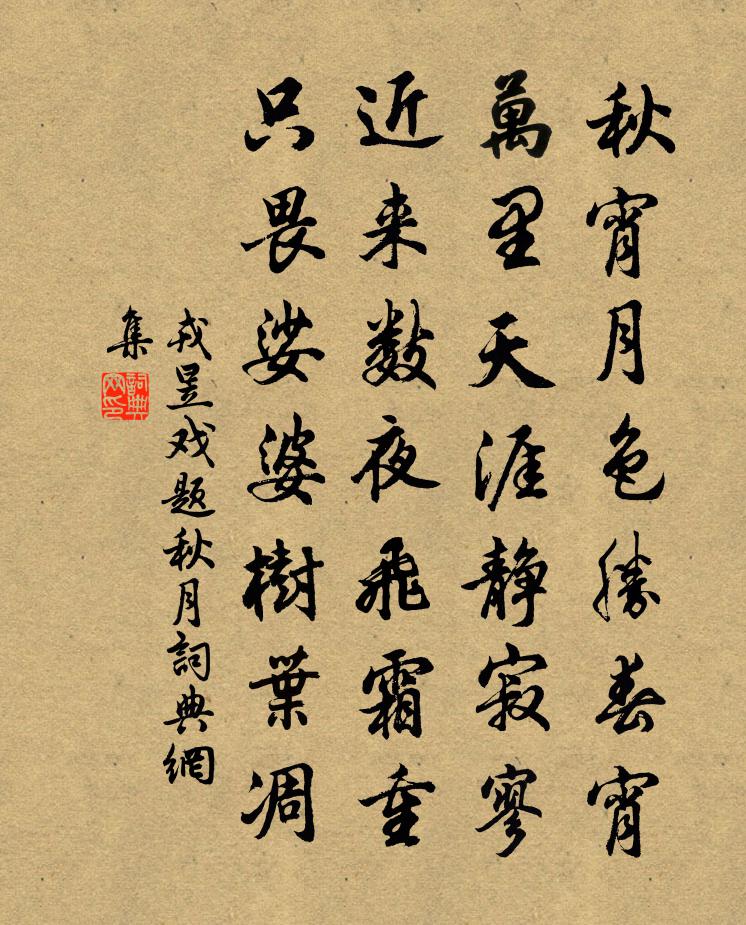 秋宵月色勝春宵
萬里天涯静寂寥
近来數夜飛霜重
只畏娑婆樹葉凋
戎昱戏题秋月詞典網
集
詞典
网印